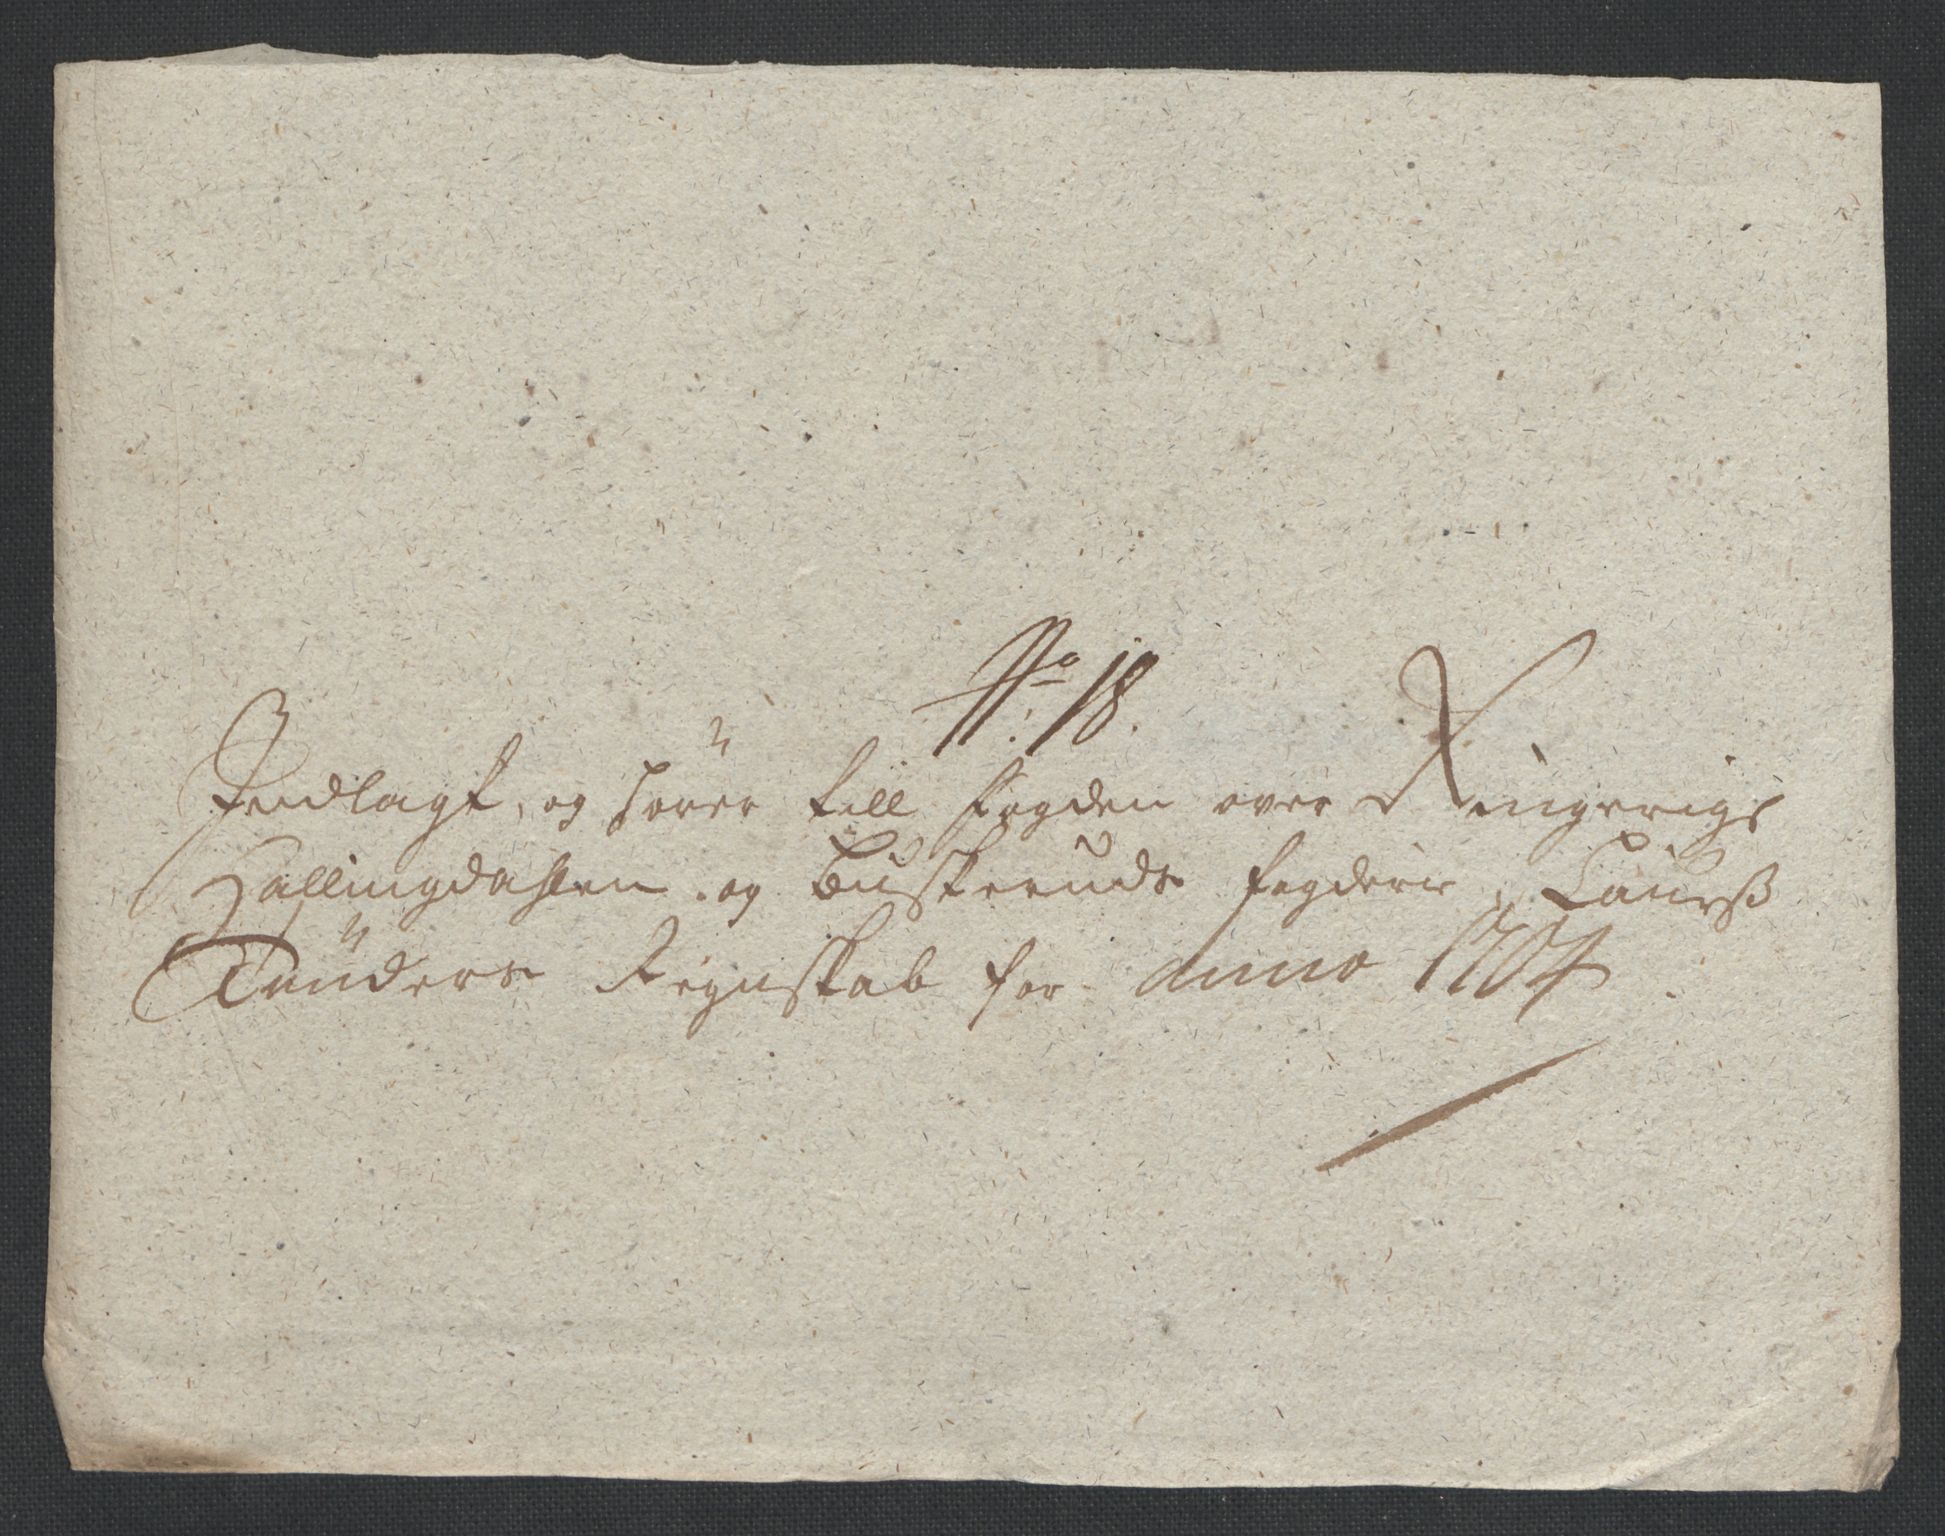 No: 18.
Indlagt, og hører till fogden over Ringerigs
Hallingdahlen og Buskeruds fogderie, Laurß
Tünders Regnskab for anno 1704